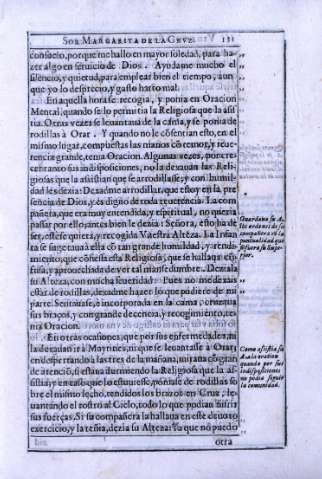 SOR MARGARITA DE LA CRVZ. 131
consuelo, porque me hallo en mayor soledad, para ha-
zer algo en seruicio de Dios. Ayudame mucho el
silencio, y quietud, para emplear bien el tiempo, aun
que yo lo desprecio, y gasto harto mal.
En aquella hora se recogia, y ponia en Oracion
Mental, quando se lo permitia la Religiosa que la asis-
tia. Otras vezes se leuantaua de la cama, y se ponia de
rodillas à Orar. Y quando no le cõsentian esto, en el
mismo lugar, compuestas las manos cõ temor, y reue-
rencia grande, tenia Oracion. Algunas vezes, por
sus indisposiciones, no la dexauan las Reli-
giosas que la asistian que se arrodillasse, y con humil
dad les dezia: Dexadme arrodillar, que estoy en la pre
sencia de Dios, y es digno de toda reuerencia. La com
pañera, que era muy entendida, y espiritual, no queria
passar por ello, antes bien le dezia: Señora, esto ha de
ser, estese queda, y recoxida Vuestra Alteza. La
se sugetaua à ella cõ tan grande humildad, y rendi-
miento, que cõfiesa esta Religiosa, que se hallaua
y aprouechada de ver tal mansedumbre. Deziala
su Alteza, con mucha serenidad: Pues no me dexais
estar de rodillas, dexadme hazer lo que pudiere de mi
parte. Sentauase, è incorporada en la cama, cruzaua
sus braços, y con grande decencia, y recogimiento, te-
nia Oracion.
En otras ocasiones, que por sus enfermedades, no
la dexauan à Maytines, ni que se leuantasse à Orar;
en despertando à las tres de la mañana, miraua con gran
de atenciõ, si estaua durmiendo la Religiosa que la as-
sistia; y en caso que lo estuuiesse, ponia se de rodillas so
bre el mismo lecho, tendidos los braços en Cruz, le-
uantando el rostro al Cielo, todo lo que podian sufrir
sus fuerças. Si su compañera la hallaua en este deuoto
exercicio, y la reñia, dezia su Alteza: Yo que no puedo
otra
Guardaua su Al-
teza
puntualidad que
Como asistia su
A. a la oracion
quando por sus
indisposiciones
no podia seguir
la comunidad.